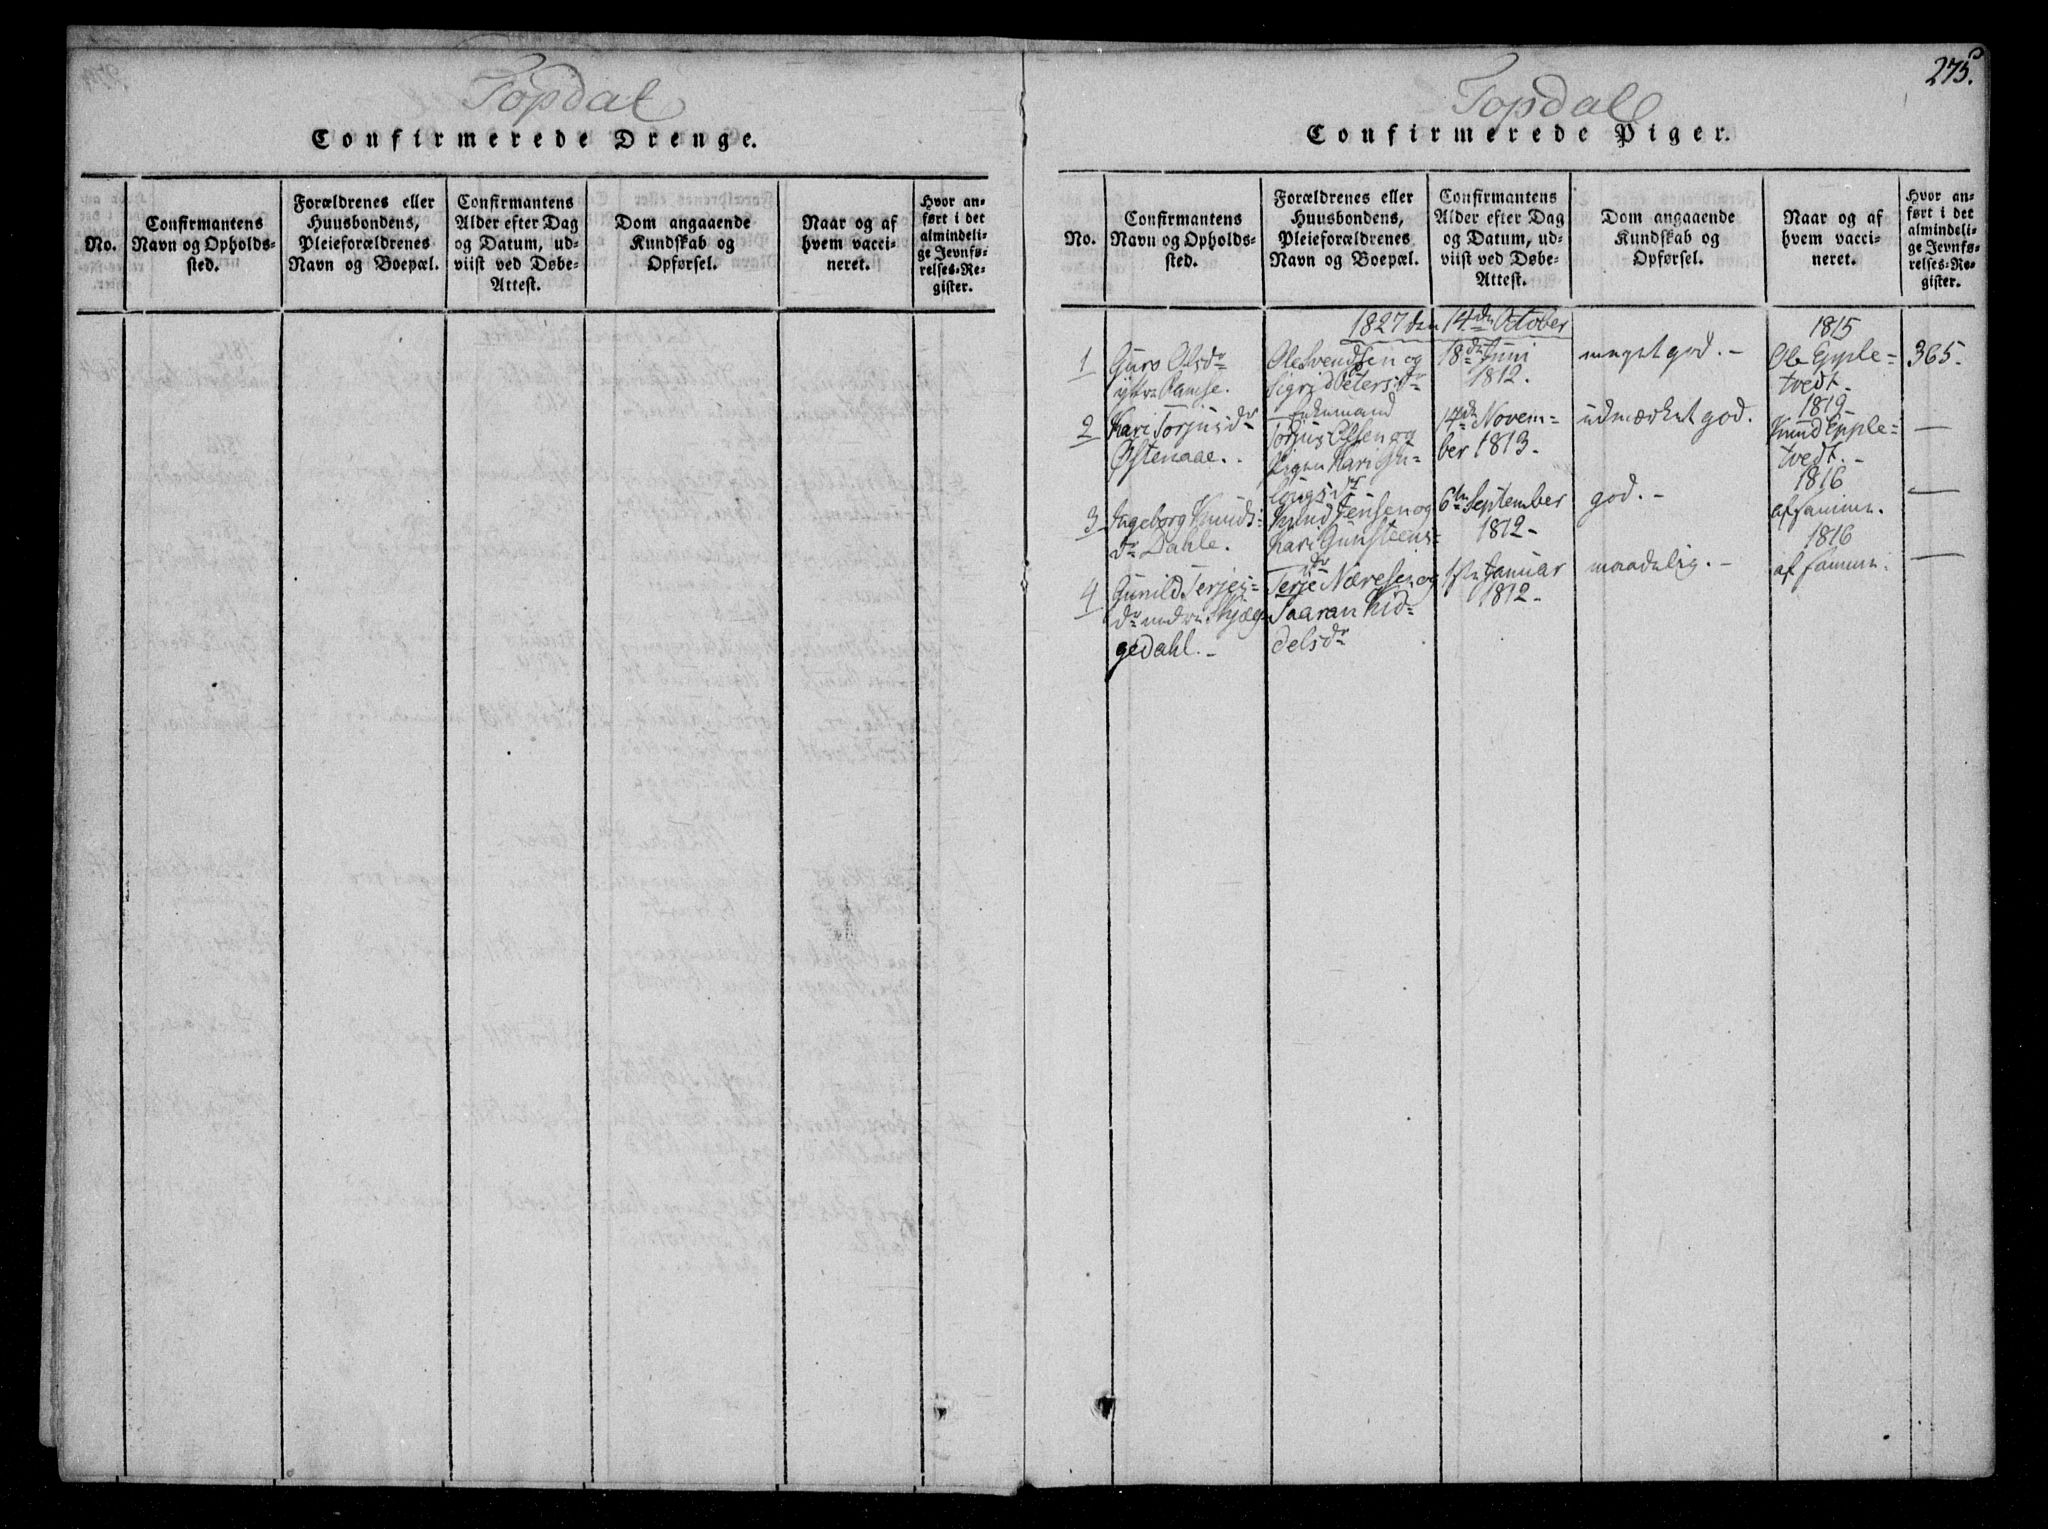 Topdal
Confirmerede Drenge.
No.
Confirmantens
Navn og Opholds-
sted.
Forældrenes eller
Huusbondens,
Pleieforældrenes
Navn og Boepæl.
Confirmantens
Alder efter Dag
og Datum, ud-
viist ved Døbe-
Attest.
Dom angaaende
Kundskab og
Opførsel.
Naar og af
hvem vacci-
neret.
Hvor an-
ført i det
almindeli-
ge Jevnfø-
relses-Re-
gister.
275.
Topdal
Confirmerede Piger.
No.
Confirmantens
Navn og Opholds-
sted.
Forældrenes eller
Huusbondens,
Pleieforældrenes
Navn og Boepæl.
Confirmantens
Alder efter Dag
og Datum, ud-
viist ved Døbe-
Attest.
Dom angaaende
Kundskab og
Opførsel.
Naar og af
hvem vacci-
neret.
Hvor an-
ført i det
almindeli-
ge Jevnfø-
relses-Re-
gister.
1827 den 14de October
1
Guro Olsdr
ytre Ramse.
Ole Svendsen og
Sigrid Petersdr
18de Juni
1812.
meget god. -
1815
Ole Epple-
tvedt.
365.
2
Kari Torjusdr
Østenaae.
Torjus Olsen og
Pigen Kari Gu-
lougsdr
14de Novem-
ber 1813.
udmærket god.
1819
Knud Epple-
tvedt. -
3
Ingeborg Knuds-
dr Dahle.
Knud Jensen og
Kari Gunsteens-
dr
6te September
1812 -
god. -
1816
af samme.
4
Gunild Terjes-
dr nedre Skjæg-
gedahl. -
Terje Næresen og
Taaran Kid-
delsdr
1ste Januar
1812 -
maadelig. -
1816
af samme.